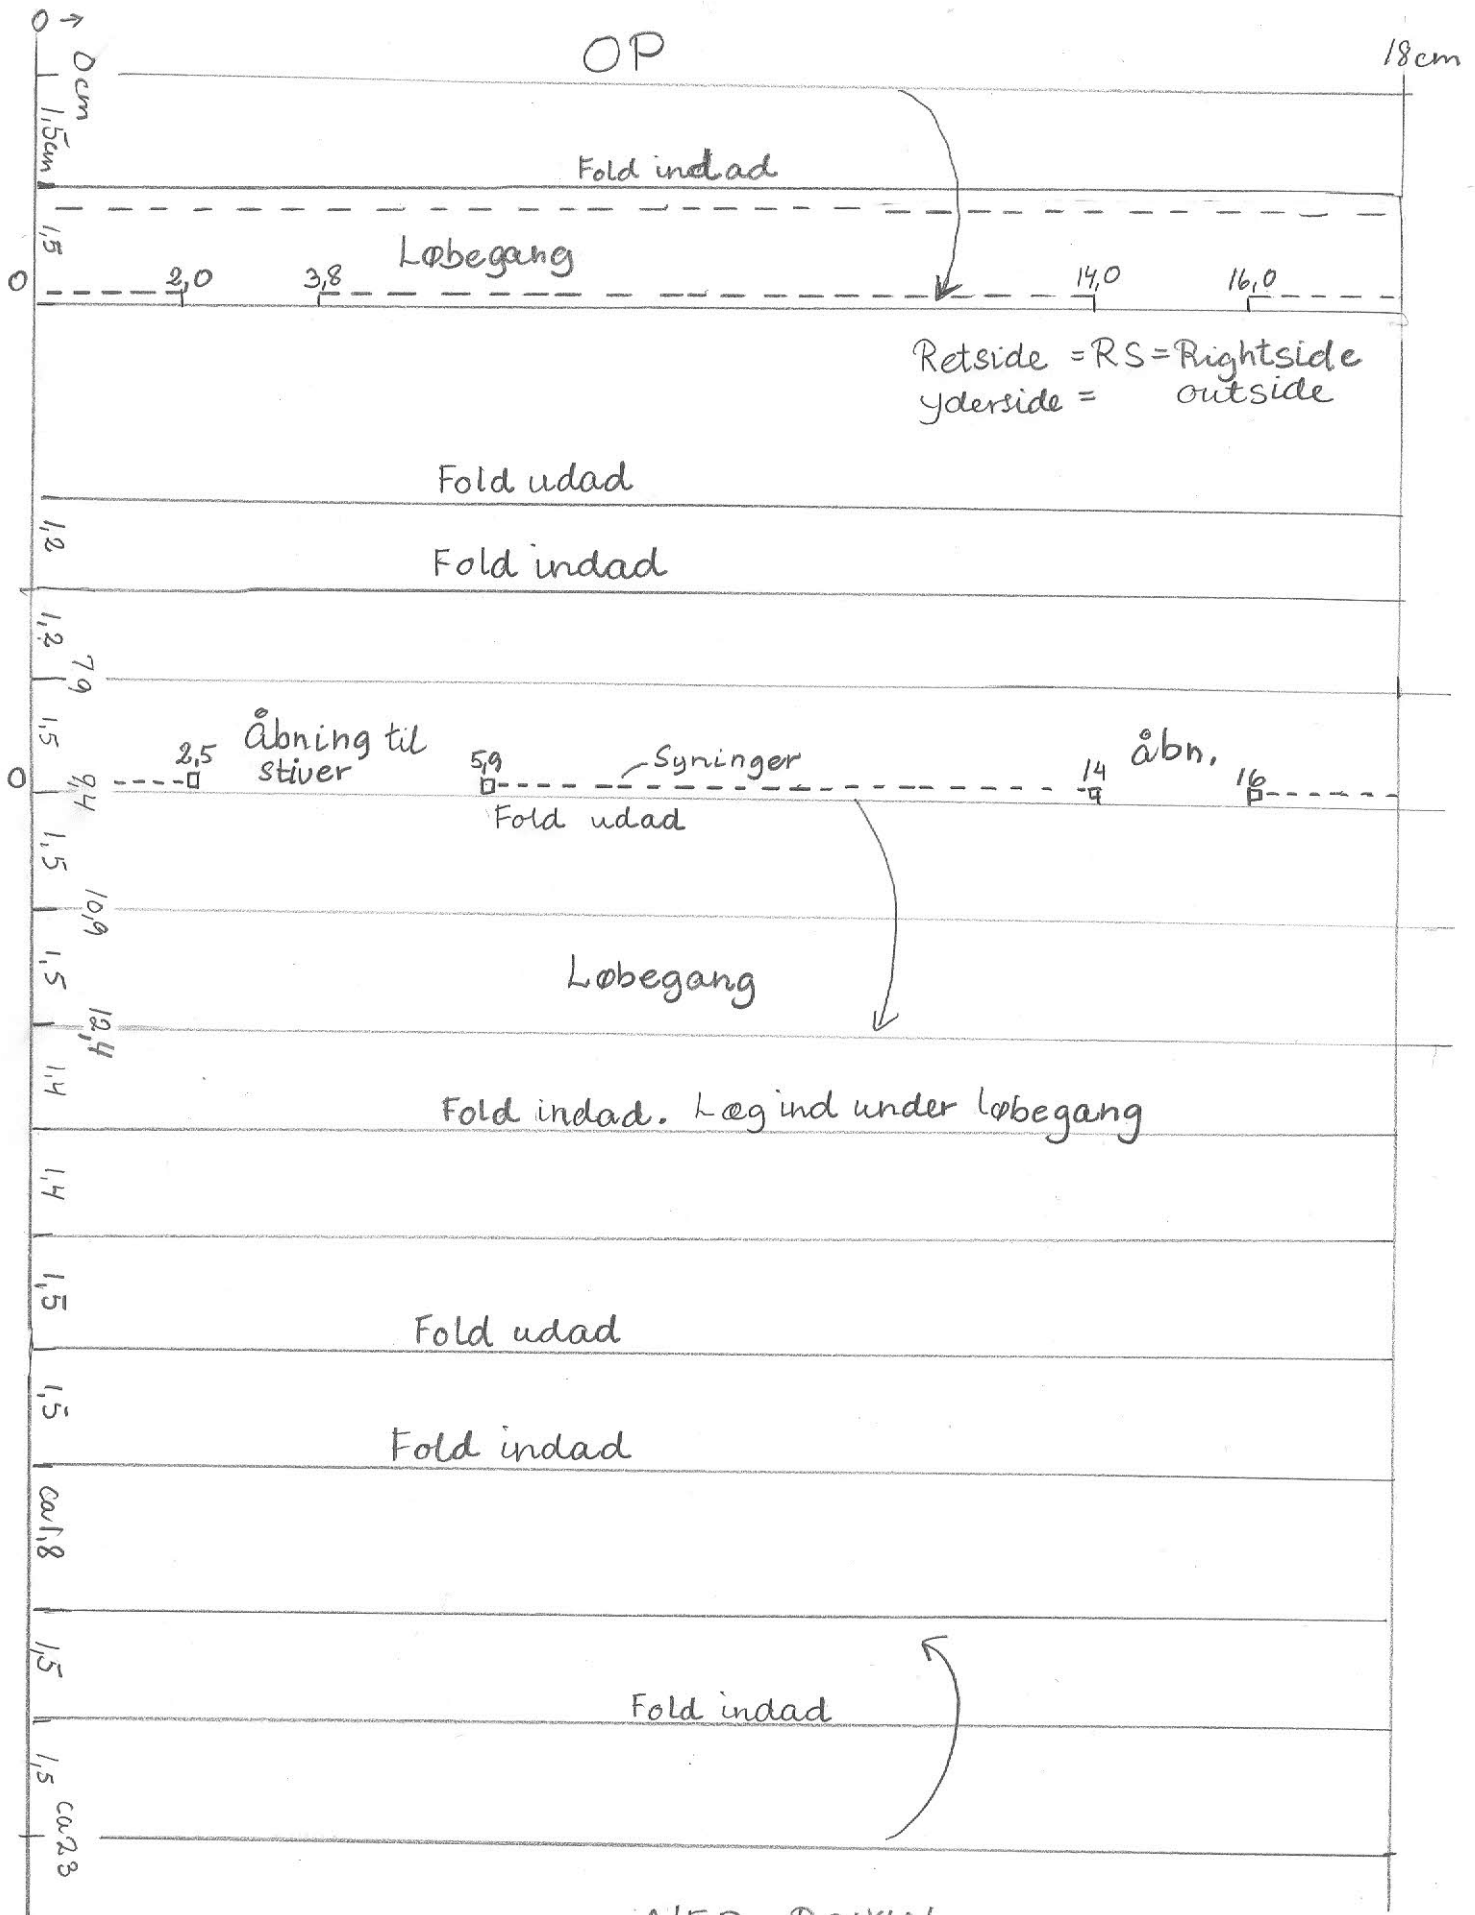 0 →
OP
18cm
0cm
1,5cm
Fold indad
1,5
Løbegang
0
2,0
3,8
14,0
16,0
Retside = RS = Rightside
yderside = outside
Fold udad
1,2
Fold indad
1,2
7,9
1,5
Åbning til
stiver
2,5
5,9
Syninger
14
åbn.
16
0
9,4
Fold udad
1,5
10,9
1,5
Løbegang
12,4
1,4
Fold indad. Læg ind under løbegang
1,4
1,5
Fold udad
1,5
Fold indad
ca 1,8
1,5
Fold indad
1,5
ca 23